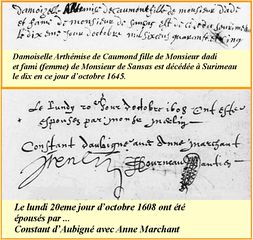 damoiselle Arthemise de caumont fille de monsieur dade
et fame de monsieur de sansas est décédée a surimeau
le dix eme jour doctobre mil six cens quarante et cinq
Damoiselle Arthémise de Caumond fille de Monsieur dadi
et fami (femme) de Monsieur de Sansas est décédée à Surimeau
le dix en ce jour d'octobre 1645.
Le Lundy 20e jour doctobre 1608 ont este
espouses par
Constant daubigne avec anne marchant
Le lundi 20eme jour d'octobre 1608 ont été
épousés par ...
Constant d'Aubigné avec Anne Marchant